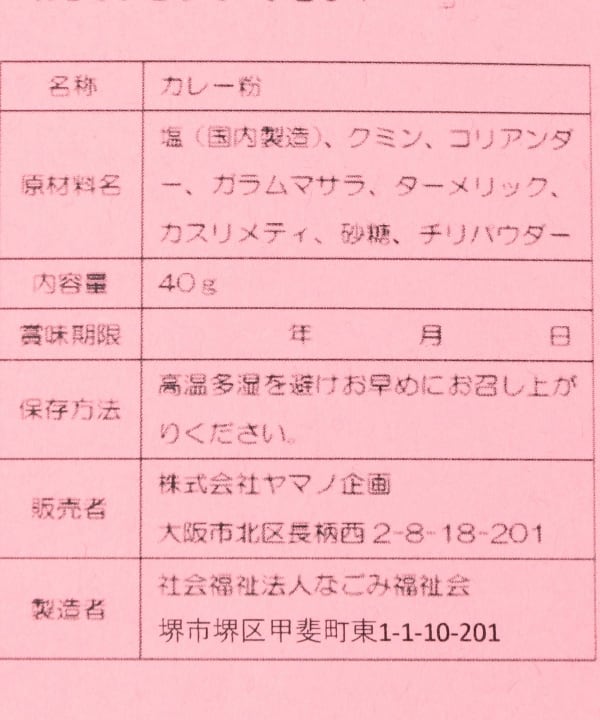 名称 カレー粉
原材料名 塩（国内製造）、クミン、コリアンダ
ー、ガラムマサラ、ターメリック、
カスリメティ、砂糖、チリパウダー
内容量 40g
賞味期限 年 月 日
保存方法 高温多湿を避けお早めにお召し上が
りください。
販売者 株式会社ヤマノ企画
大阪市北区長柄西2-8-18-201
製造者 社会福祉法人なごみ福祉会
堺市堺区甲斐町東1-1-10-201